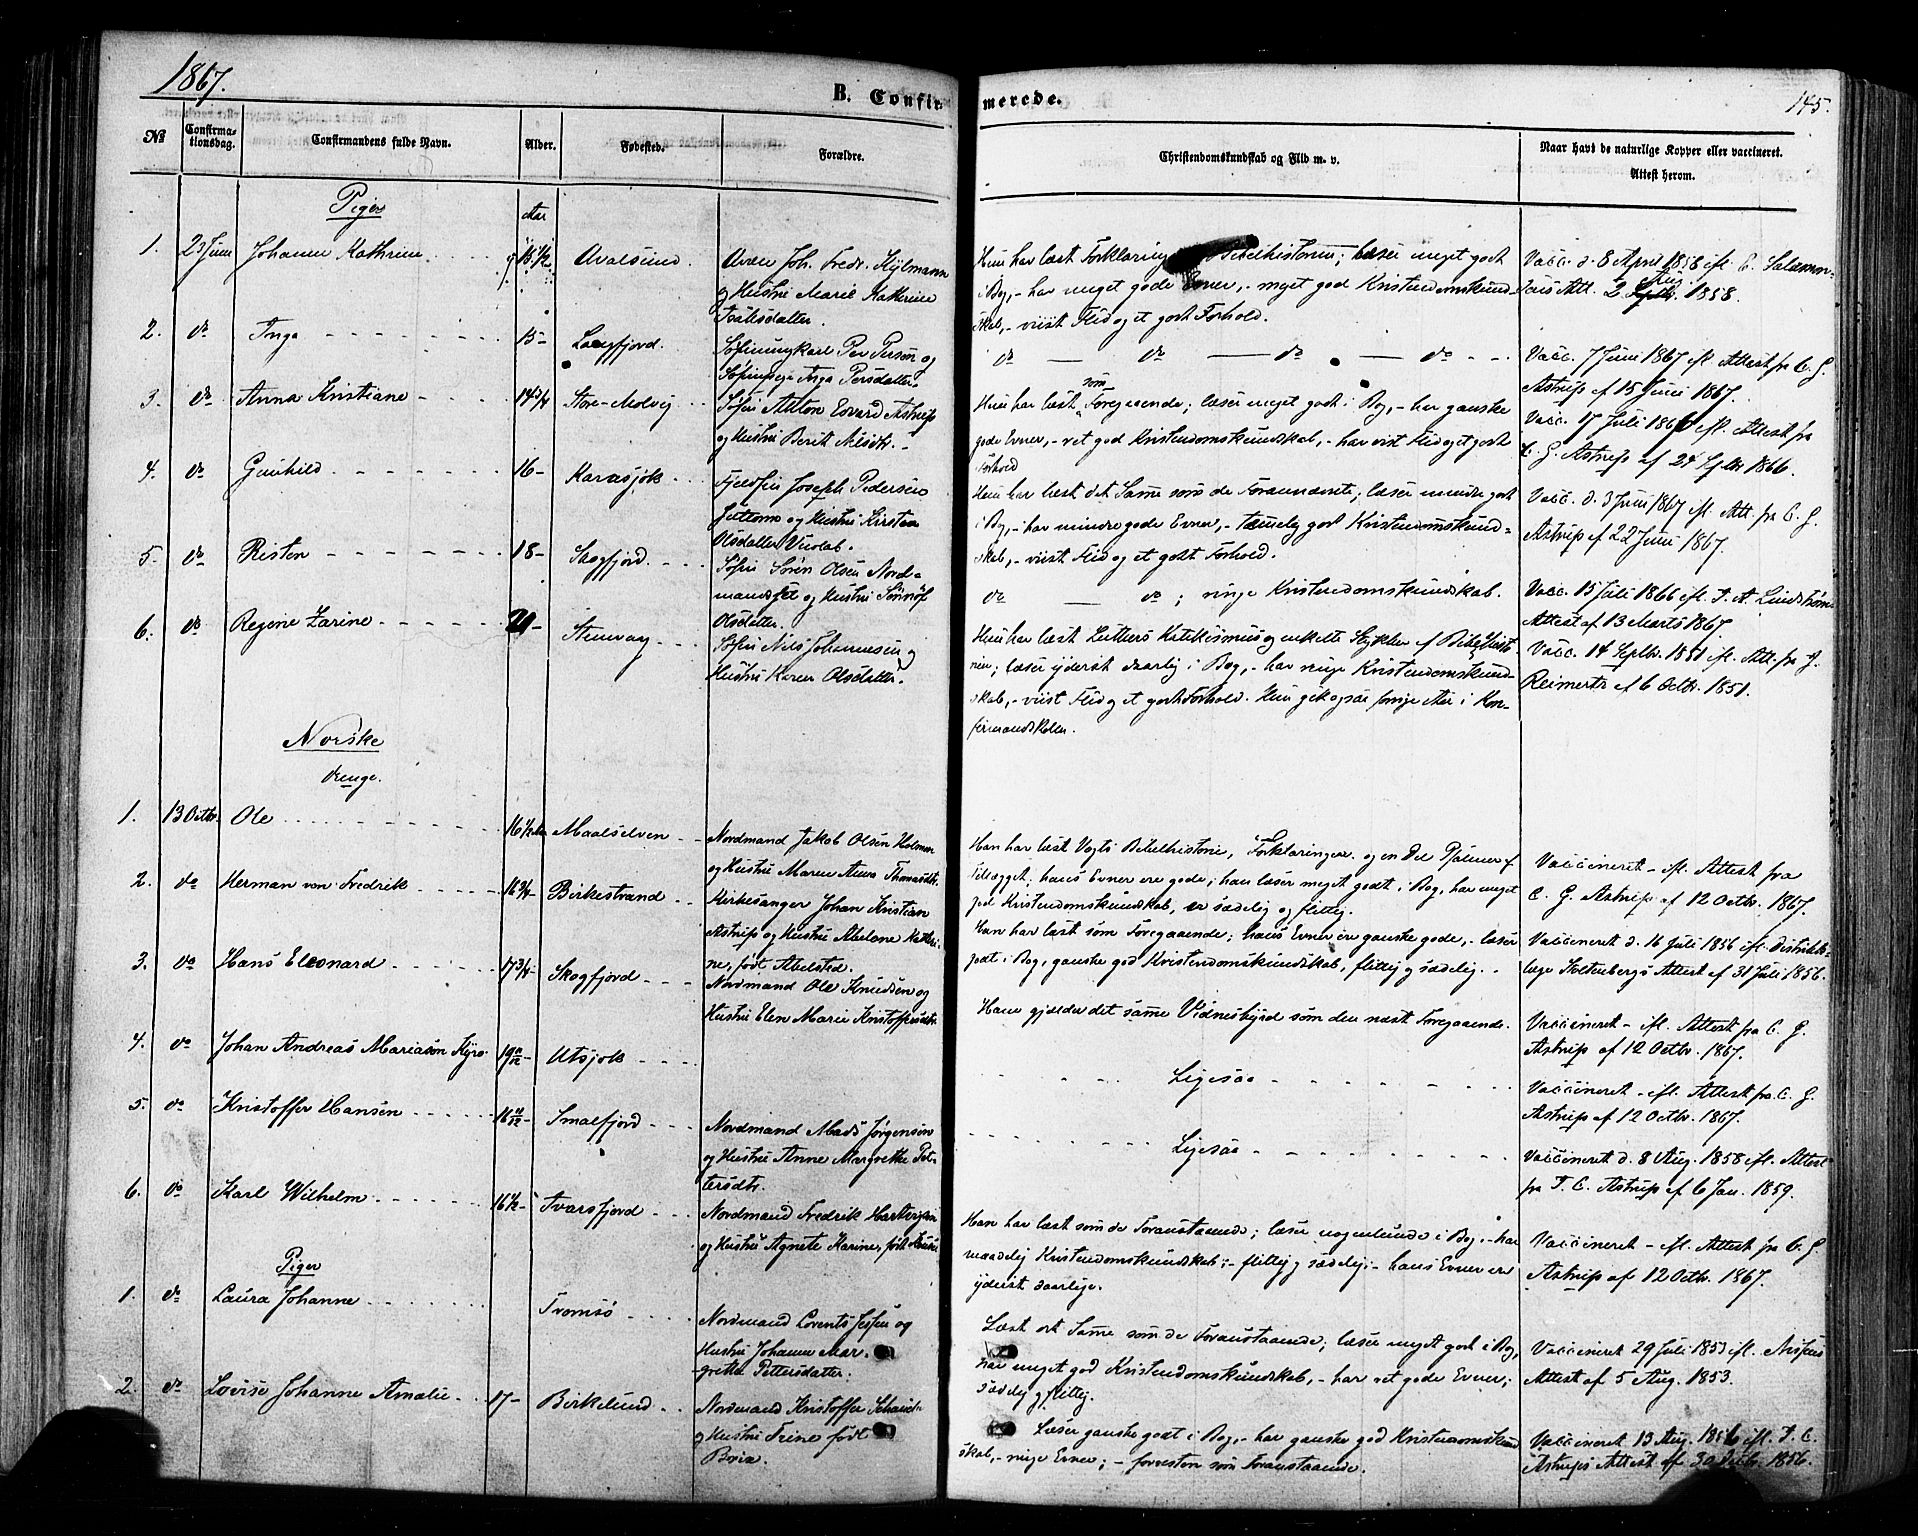 1867.
B. Confir-
merede.
145.
No
Confirma-
tionsdag.
Confirmandens fulde Navn.
Alder.
Fødested.
Forældre.
Christendomskundskab og Flid m. v.
Naar havt de naturlige Kopper eller vaccineret.
Attest herom.
Piger
Aar
1. 23 Juni Johanne Kathrine 15 1/2
Hun har læst Forklaring Bibelhistorie; læser meget godt
i Bog, - har meget gode Evner, - meget god Kristendomskund-
skab, - viist Flid og et godt Forhold.
Vacc. d. 8 April 1858 efl. C.
Att. 2 Aug. 1858.
og Hustru Marie Katherine
2. do Inga 15- Langfjord.
Per Persen og
Inga Persdatter.
do - do - do - do
Vacc. 7 Juni 1867 efl. Attest fra C. G.
Astrup af 15 Juni 1867.
3. do Anna Kristiane 14 3/4 Store-Molvig
Søfin Anton Edvard Astrup
og Hustru Berit Nilsdtr.
Hun har læst som Foregaaende; læser meget godt i Bog, - har ganske
gode Evner, - ret god Kristendomskundskab, - har vist Flid og et godt
Forhold
Vacc. 17 Juli 1866 efl. Attest fra
C. G. Astrup af 24 Septbr 1866.
4. do Gunhild 16- Karasjok
Fjeldfin Joseph Pedersen
og Hustru Kirsten
Olsdatter
Hun har læst det Samme som de Forannævnte; læser mindre godt
i Bog, - har mindre gode Evner, - temelig god Kristendomskund-
skab, - viist Flid og et godt Forhold.
Vacc. d. 3 Juni 1867 efl. Att. fra C. G.
Astrup af 22 Juni 1867.
5. do Risten 18- Skogfjord.
Søfin Søren Olsen Nord-
mandsset og Hustru Sønnøf
Olsdatter.
do - do; ringe Kristendomskundskab.
Vacc. 15 Juli 1866 efl. T. A. Lindstrøms
Attest af 13 Marts 1867.
6. do Regine Zarine 20- Stenvaag
Søfin Nils Johannesen og
Hustru Karen Olsdatter.
Hun har læst Luthers Katekismus og enkelte Stykker af Bibelhisto-
rien; læser yderst daarlig i Bog, - har ringe Kristendomskund-
skab, - viist Flid og et godt Forhold. Hun gik ogsaa forrige Aar i Kon-
firmandskolen.
Vacc. 14 Septbr. 1851 efl. Att. fra J.
Reimertz af 6 Octbr. 1851.
Norske
Drenge.
1. 13 Octbr. Ole 16 1/2 Maalselven
Nordmand Jakob Olsen
og Hustru Maren Anna Thomasdtr.
Han har læst Vogts Bibelhistorie, Forklaringen og en Del Psalmer af
Tillægget; hans Evner ere gode; han læser meget godt i Bog, har meget
god Kristendomskundskab, er sædelig og flittig.
Vaccineret - efl. Attest fra
C. G. Astrup af 12 Octbr. 1867.
2. do Herman von Fredrik 16 3/4 Birkestrand
Kirkesanger Johan Kristian
Astrup og Hustru Abelone Katri-
ne, født Abelsted.
Han har læst som Foregaaende; hans Evner ere ganske gode, - læser
godt i Bog, ganske god Kristendomskundskab, flittig og sædelig.
Vaccineret d. 16 Juli 1856 efl. Distrikts-
læge Stoltenbergs Attest af 31 Juli 1856.
3. do Hans Eleonard 17 3/4 Skogfjord
Nordmand Ole Knudsen og
Hustru Elen Marie Kristoffersdtr.
Ham gjælder det samme Vidnesbyrd som den næst Foregaaende.
Vaccineret - efl. Attest fra C. G.
Astrup af 12 Octbr. 1867.
4. do Johan Andreas Mariason Kyrø 19 Utsjok
Ligesaa
Vaccineret - efl. Attest fra C. G.
Astrup af 12 Octbr. 1867.
5. do Kristoffer Hansen 16 Smalfjord
Nordmand Mads Jørgensen
og Hustru Anne Margrethe Pet-
tersdtr.
Ligesaa
Vaccineret d. 8 Aug. 1858 efl. Attest
fra T. C. Astrup af 6 Jan. 1859.
6. do Karl Wilhelm 16 1/2 Tvarsfjord
Nordmand Fredrik
og Hustru Agnete Karine, født
Han har læst som de Foranstaaende; læser nogenlunde i Bog, - har
maadelig Kristendomskundskab; - flittig og sædelig; - hans Evner ere
yderst daarlige.
Vaccineret - efl. Attest fra C. G.
Astrup af 12 Octbr. 1867.
Piger
1. do Laura Johanne Tromsø
Nordmand Lorents Jessen og
Hustru Johanne Mar-
gretha Pettersdatter.
Læst det Samme som de Foranstaaende; læser meget godt i Bog,
har meget god Kristendomskundskab, - har ret gode Evner;
sædelig og flittig.
Vaccineret 29 Juli 1853 efl.
Attest af 5 Aug. 1853.
2. do Lovise Johanne Amalie 17- Birkelund
Nordmand Kristoffer
og Hustru Trine født
Læser ganske godt i Bog, - har ganske god Kristendomskund-
skab, - ringe Evner; - forresten som Foranstaaende.
Vaccineret 13 Aug. 1856 efl. T. C.
Astrups Attest af 30 1856.